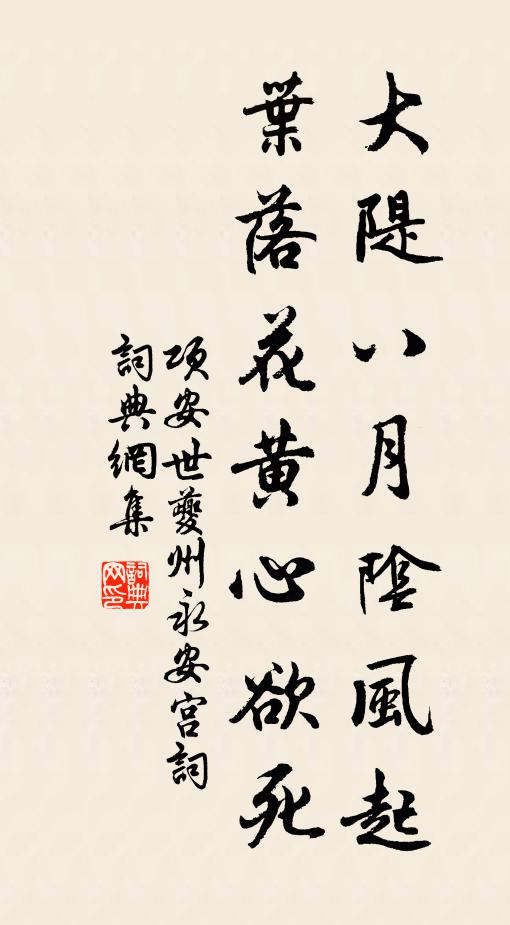 大隄八月陰風起
葉落花黃心欲死
項安世夔州永安宮詞
詞典網集
詞典网印